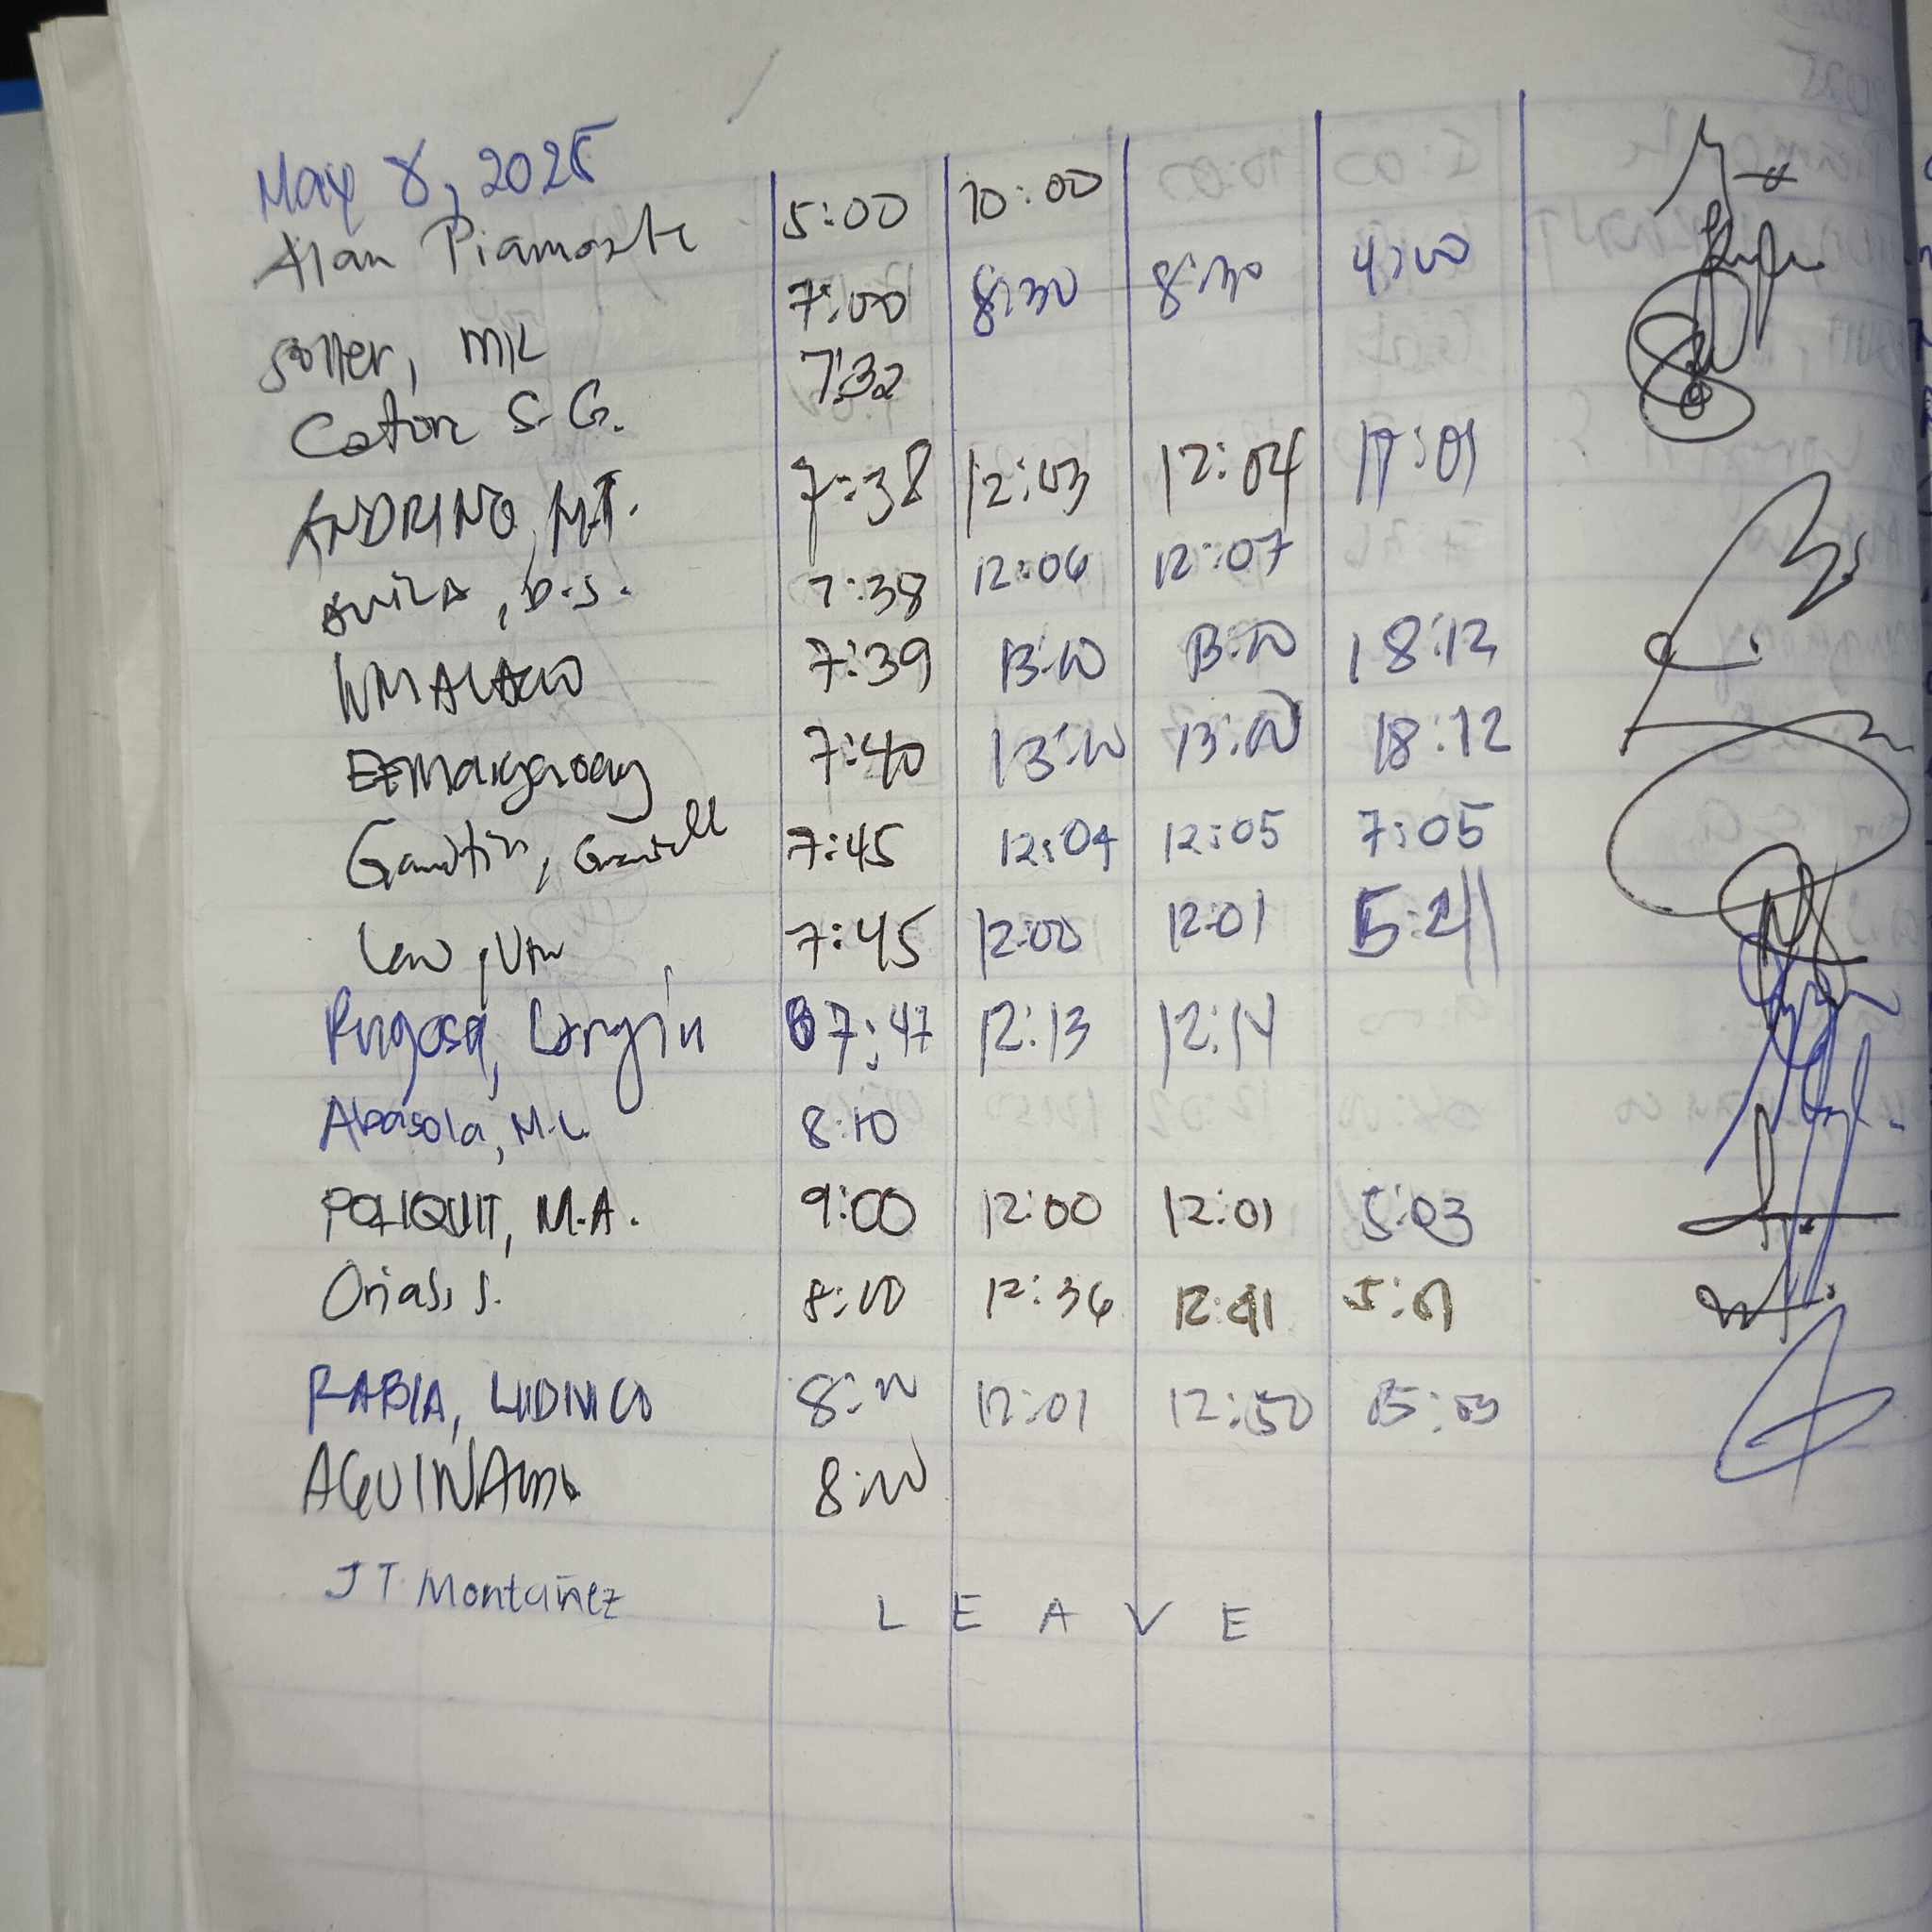 May 8, 2025
Alan Piamonte 5:00 10:00
Soller, MK 7:00 8:30 8:30 4:00
Caton S.G. 7:32
ANDRINO, M.T. 7:38 12:03 12:04 17:01
AVILA, D.S. 7:38 12:06 12:07
7:39 13:00 13:00 18:12
7:40 13:00 13:00 18:12
7:45 12:04 12:05 7:05
7:45 12:00 12:01 5:41
Rugosa, Longin 07:47 12:13 12:14
Abasola, M.L. 8:10
POLIQUIT, M.A. 9:00 12:00 12:01 5:03
Orias, S. 8:00 12:36 12:41 5:01
RABIA, LUDIVICO 8:00 12:01 12:50 5:03
AGUINALDO 8:00
J T Montañez L E A V E